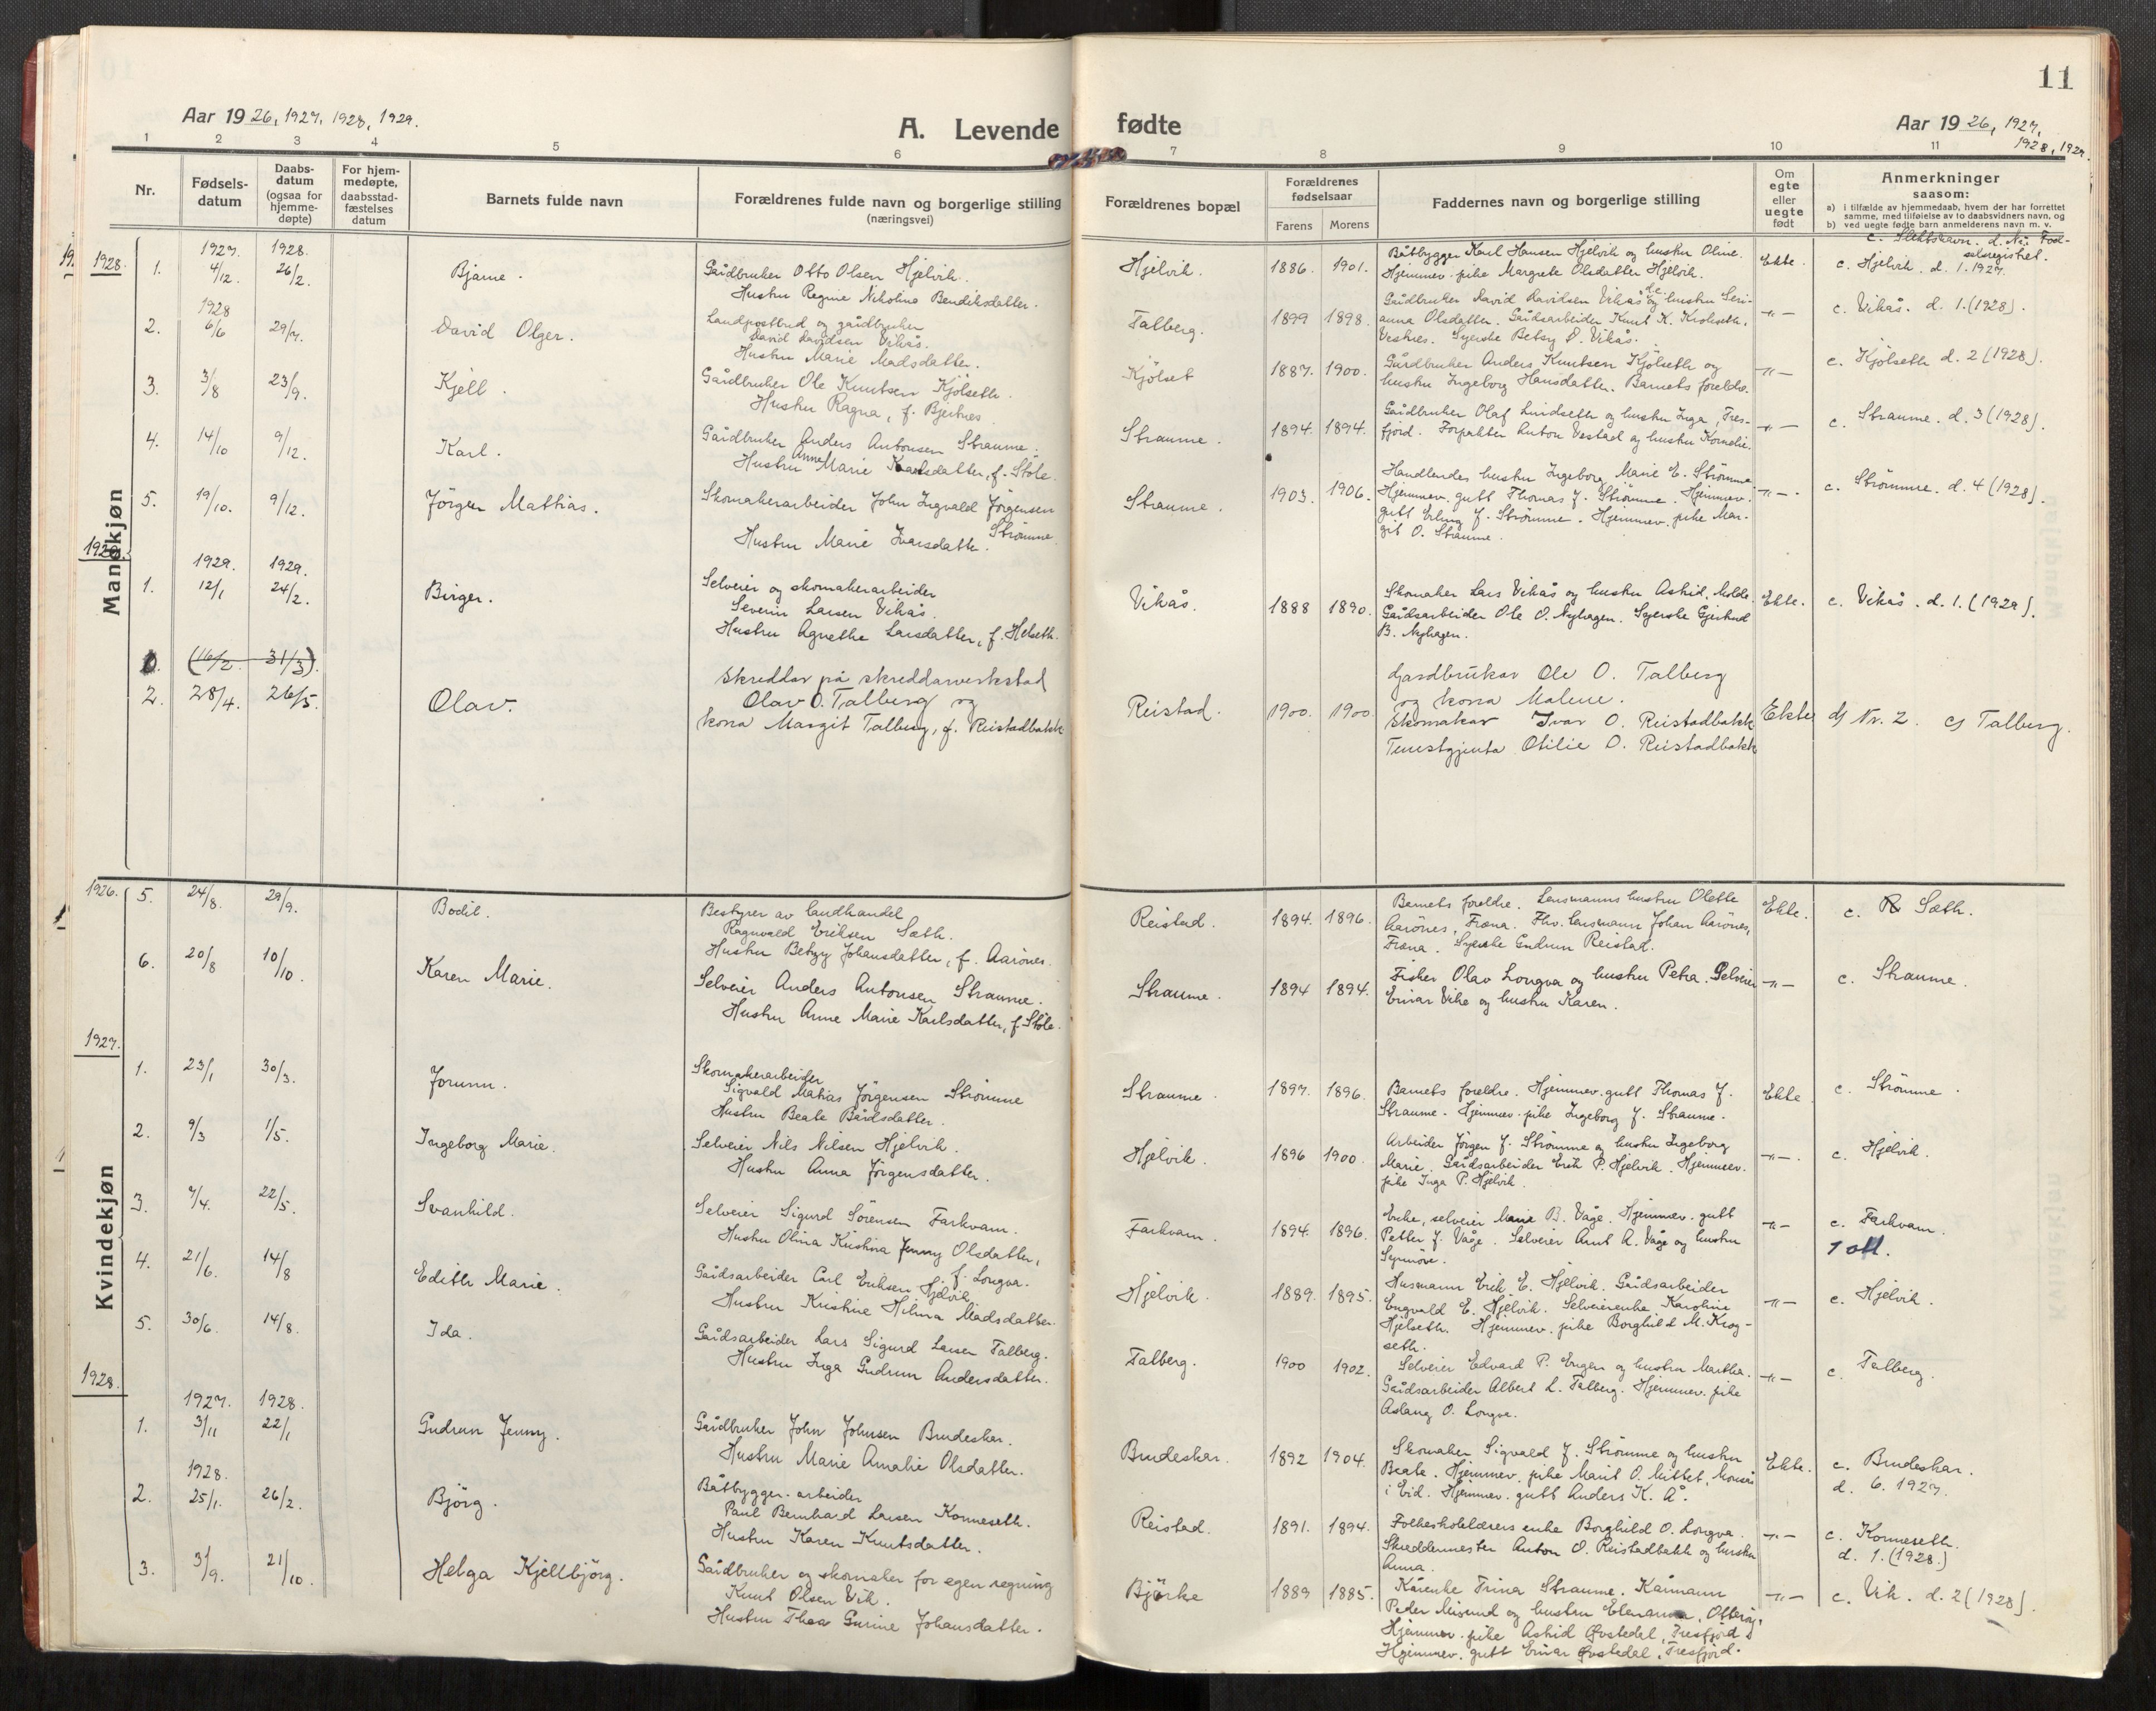 11
Aar 1926, 1927, 1928, 1929.
A. Levende fødte
Aar 1926, 1927,
1928, 1929.
1 2 3 4 5 6 7 8 9 10 11
Nr.
Fødsels-
datum
Daabs-
datum
(ogsaa for
hjemme-
døpte)
For hjem-
medøpte,
daabsstad-
fæstelses
datum
Barnets fulde navn
Forældrenes fulde navn og borgerlige stilling
(næringsvei)
Forældrenes bopæl
Forældrenes
fødselsaar
Farens Morens
Faddernes navn og borgerlige stilling
Om
egte
eller
uegte
født
Anmerkninger
saasom:
a) i tilfælde av hjemmedaab, hvem der har forrettet
samme, med tilføielse av to daabsvidners navn, og
b) ved uegte fødte barn anmelderens navn m. v.
c. Slektsnavn. d. Nr. Fød-
selsregistret.
Mandkjøn
1928.
1927. 1928.
1. 4/12. 26/2. Bjarne.
Gaardbruker Otto Olsen Hjelvik.
Hustru Regine Nikoline Bendiksdatter.
Hjelvik. 1886. 1901.
Båtbygger Karl Hansen Hjelvik og hustru Oline.
Hjemmev. pike Margrete Olsdatter Hjelvik.
Ekte. c. Hjelvik. d. 1. 1927.
1928
2. 6/6 29/7. David Olger.
Landpostbud og gaardbruker
David Davidsen Vikås.
Hustru Marie Madsdatter.
Talberg. 1899 1898.
Gårdbruker David Davidsen Vikås og hustru Seri-
anna Olsdatter. Gårdsarbeider Knut K. Krokseth,
Vestnes. Syerske Betsy D. Vikås.
-"- c. Vikås. d. 1. (1928).
3. 3/8 23/9. Kjell.
Gårdbruker Ole Knutsen Kjölseth.
Hustru Ragna, f. Bjertnes
Kjölset 1887. 1900.
Gårdbruker Anders Knutsen Kjölseth og
hustru Ingeborg Hansdatter. Barnets foreldre.
-"- c. Kjölseth d. 2 (1928).
4. 14/10 9/12. Karl.
Gårdbruker Anders Antonsen Straume.
Hustru Anne Marie Karlsdatter, f. Stöle.
Straume. 1894. 1894.
Gårdbruker Olaf Lindseth og hustru Inga, Tres-
fjord. Forpakter Anton Vestad og hustru Kornelie.
-"- c. Straume. d. 3 (1928).
5. 19/10. 9/12. Jörgen Mathias.
Skomakerarbeider John Ingvald Jörgensen
Strömme.
Hustru Marie Ivarsdatter.
Straume. 1903. 1906.
Handlendes hustru Ingeborg Marie E. Strömme.
Hjemmev. gutt Thomas J. Strömme. Hjemmev.
gutt Erling J. Strömme. Hjemmev. pike Mar-
git O. Straume.
-"-. c. Strömme. d. 4 (1928).
1929.
1929. 1929.
1. 12/1 24/2. Birger.
Selveier og skomakerarbeider
Severin Larsen Vikås.
Hustru Agnethe Larsdatter, f. Helseth.
Vikås. 1888 1890.
Skomaker Lars Vikås og hustru Astrid, Molde.
Gårdsarbeider Ole O. Nyhagen. Syerske Gjertrud
B. Nyhagen.
Ekte. c. Vikås. d. 1. (1929).
(16/2 31/3).
2. 28/4. 26/5. Olav.
Skreddar på skreddarverkstad
Olav O. Talberg og
kona Margit Talberg, f. Reistadbakk
Reistad. 1900. 1900
Gardbrukar Ole O. Talberg
og kona Malene.
Skomakar Ivar O. Reistadbakk
Tenestgjenta Otilie O. Reistadbakk
Ekte d) Nr. 2. c) Talberg.
Kvindekjøn
1926.
5. 24/8. 29/9. Bodil.
Bestyrer av landhandel
Ragnvald Eriksen Sæth.
Hustru Betzy Johansdatter, f. Aarönes.
Reistad. 1894. 1896.
Barnets foreldre. Lensmanns hustru Olette
Aarönes, Fræna. Fhv. lensmann Johan Aarönes,
Fræna. Syerske Gudrun Reistad.
Ekte. c. Sæth.
6. 20/8 10/10. Karen Marie.
Selveier Anders Antonsen Straume.
Hustru Anne Marie Karlsdatter, f. Stöle.
Straume. 1894 1894.
Fisker Olav Longva og hustru Petra. Selveier
Einar Vike og hustru Karen.
-"- c. Straume.
1927.
1. 23/1 30/3. Jorunn.
Skomakerarbeider
Sigvald Matias Jörgensen Strömme
Hustru Beate Bårdsdatter.
Straume. 1897. 1896.
Barnets foreldre. Hjemmev. gutt Thomas J.
Straume. Hjemmev. pike Ingeborg J. Straume.
Ekte c. Strömme.
2. 9/3 1/5. Ingeborg Marie.
Selveier Nils Nilsen Hjelvik.
Hustru Anna Jörgensdatter.
Hjelvik. 1896 1900.
Arbeider Jörgen J. Strömme og hustru Ingeborg
Marie. Gårdsarbeider Erik P. Hjelvik. Hjemmev.
pike Inga P. Hjelvik.
-"-. c. Hjelvik.
3. 7/4. 22/5. Svanhild.
Selveier Sigurd Sörensen Farkvam.
Hustru Olina Kristina Jenny Olsdatter,
f. Longva.
Farkvam. 1894. 1896.
Enke, selveier Marie B. Våge. Hjemmev. gutt
Petter J. Våge. Selveier Arnt A. Våge og hustru
Synnöve.
-"- c. Farkvam.
4. 21/6. 14/8 Edith Marie.
Gårdsarbeider Carl Eriksen Hjelvik
Hustru Kristine Hilma Madsdatter.
Hjelvik. 1889. 1895.
Husmann Erik E. Hjelvik. Gårdsarbeider
Engvald E. Hjelvik. Selveierenke Karoline
Hjelseth. Hjemmev. pike Borghild M. Krog-
seth.
-"- c. Hjelvik.
5. 30/6. 14/8. Ida.
Gårdsarbeider Lars Sigurd Larsen Talberg.
Hustru Inga Gudrun Andersdatter.
Talberg. 1900 1902.
Selveier Edvard P. Engen og hustru Martha.
Gårdsarbeider Albert L. Talberg. Hjemmev. pike
Aslaug O. Longva.
-"- c. Talberg.
1928.
1927. 1928.
1. 3/11 22/1 Gudrun Jenny.
Gårdbruker John Johnsen Brudeskar.
Hustru Marie Amalie Olsdatter.
Brudeskar. 1892 1904.
Skomaker Sigvald J. Strömme og hustru
Beate. Hjemmev. pike Marit O. Mittet,
i Eid. Hjemmev. gutt Anders K. Å.
Ekte. c. Brudeskar.
d. 6. 1927.
1928.
2. 25/1. 26/2. Björg.
Båtbygger-arbeider
Paul Bernhard Larsen Konneseth.
Hustru Karen Knutsdatter.
Reistad. 1891. 1894.
Folkeskolelærers enke Borghild O. Longva.
Skreddermester Anton O. Reistadbakk og hustru
Anna.
-"- c. Konneseth.
d. 1. (1928.)
3. 3/9. 21/10. Helga Kjellbjörg.
Gårdbruker og skomaker for egen regning
Knut Olsen Vik.
Hustru Thea Gurine Johansdatter.
Björke 1889 1885.
Kårenke Trina Straume. Kårmann
Peder Misund og hustru Elenanna, Otteröy.
Hjemmev. pike Astrid Øvstedal, Tresfjord.
Hjemmev. gutt Einar Øvstedal, Tresfjord.
-"- c. Vik. d. 2 (1928).